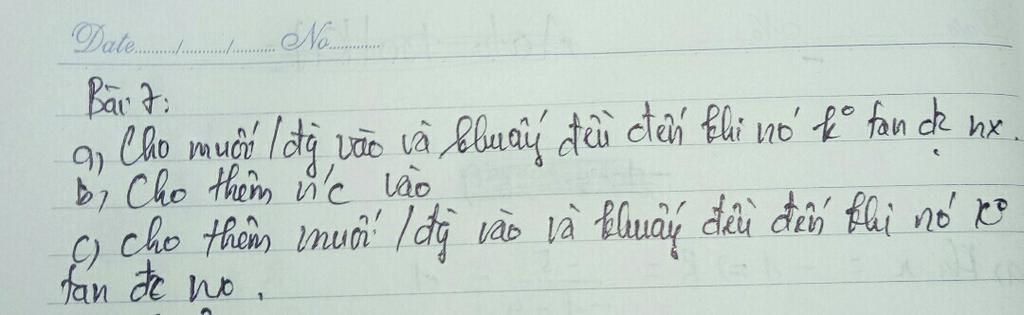 Date ........../........../.......... No. ..........
Bài 7:
a, Cho muối / đg vào và khuấy đều đến khi nó k° tan đc nx.
b, Cho thêm n'c vào
c) cho thêm muối / đg vào và khuấy đều đến khi nó k°
tan đc nx.